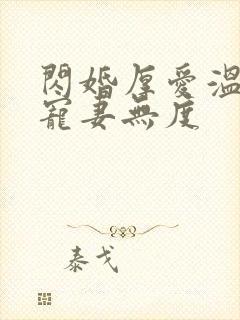 閃婚厚愛溫
寵妻無度
泰戈